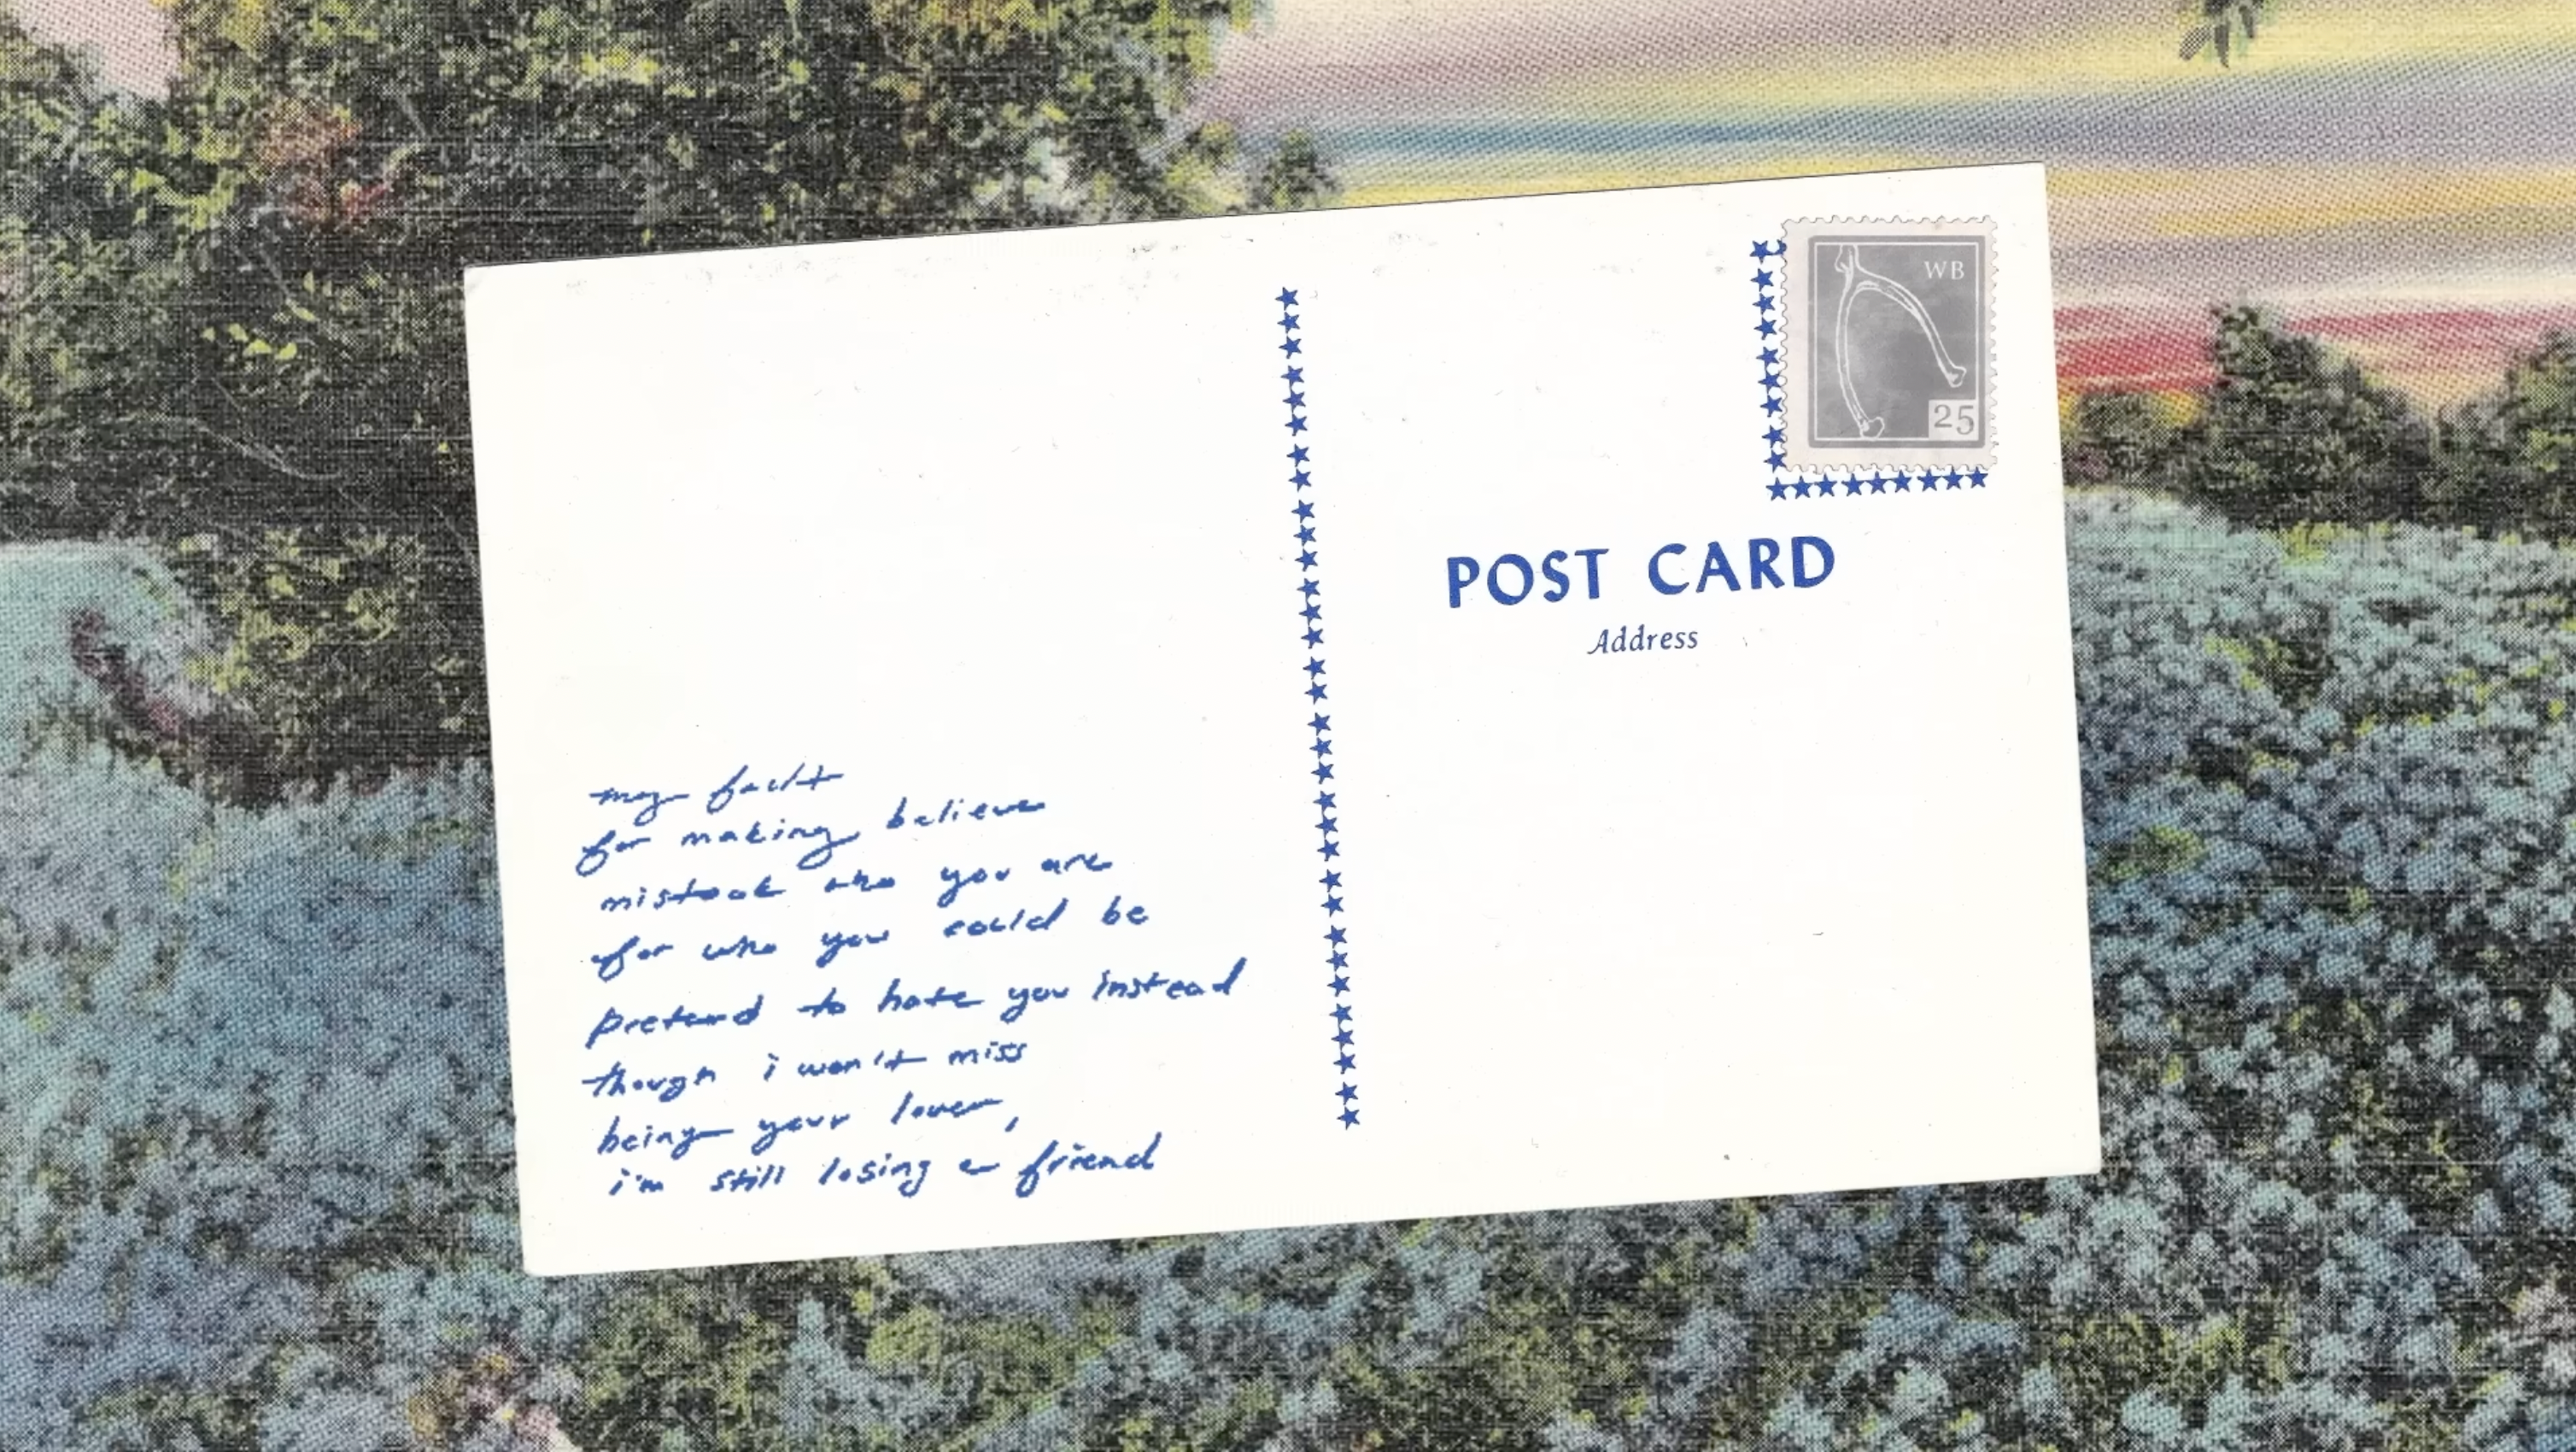 my fault
for making believe
mistook who you are
for who you could be
pretend to hate you instead
though i won't miss
being your lover,
i'm still losing a friend
WB
25
POST CARD
Address